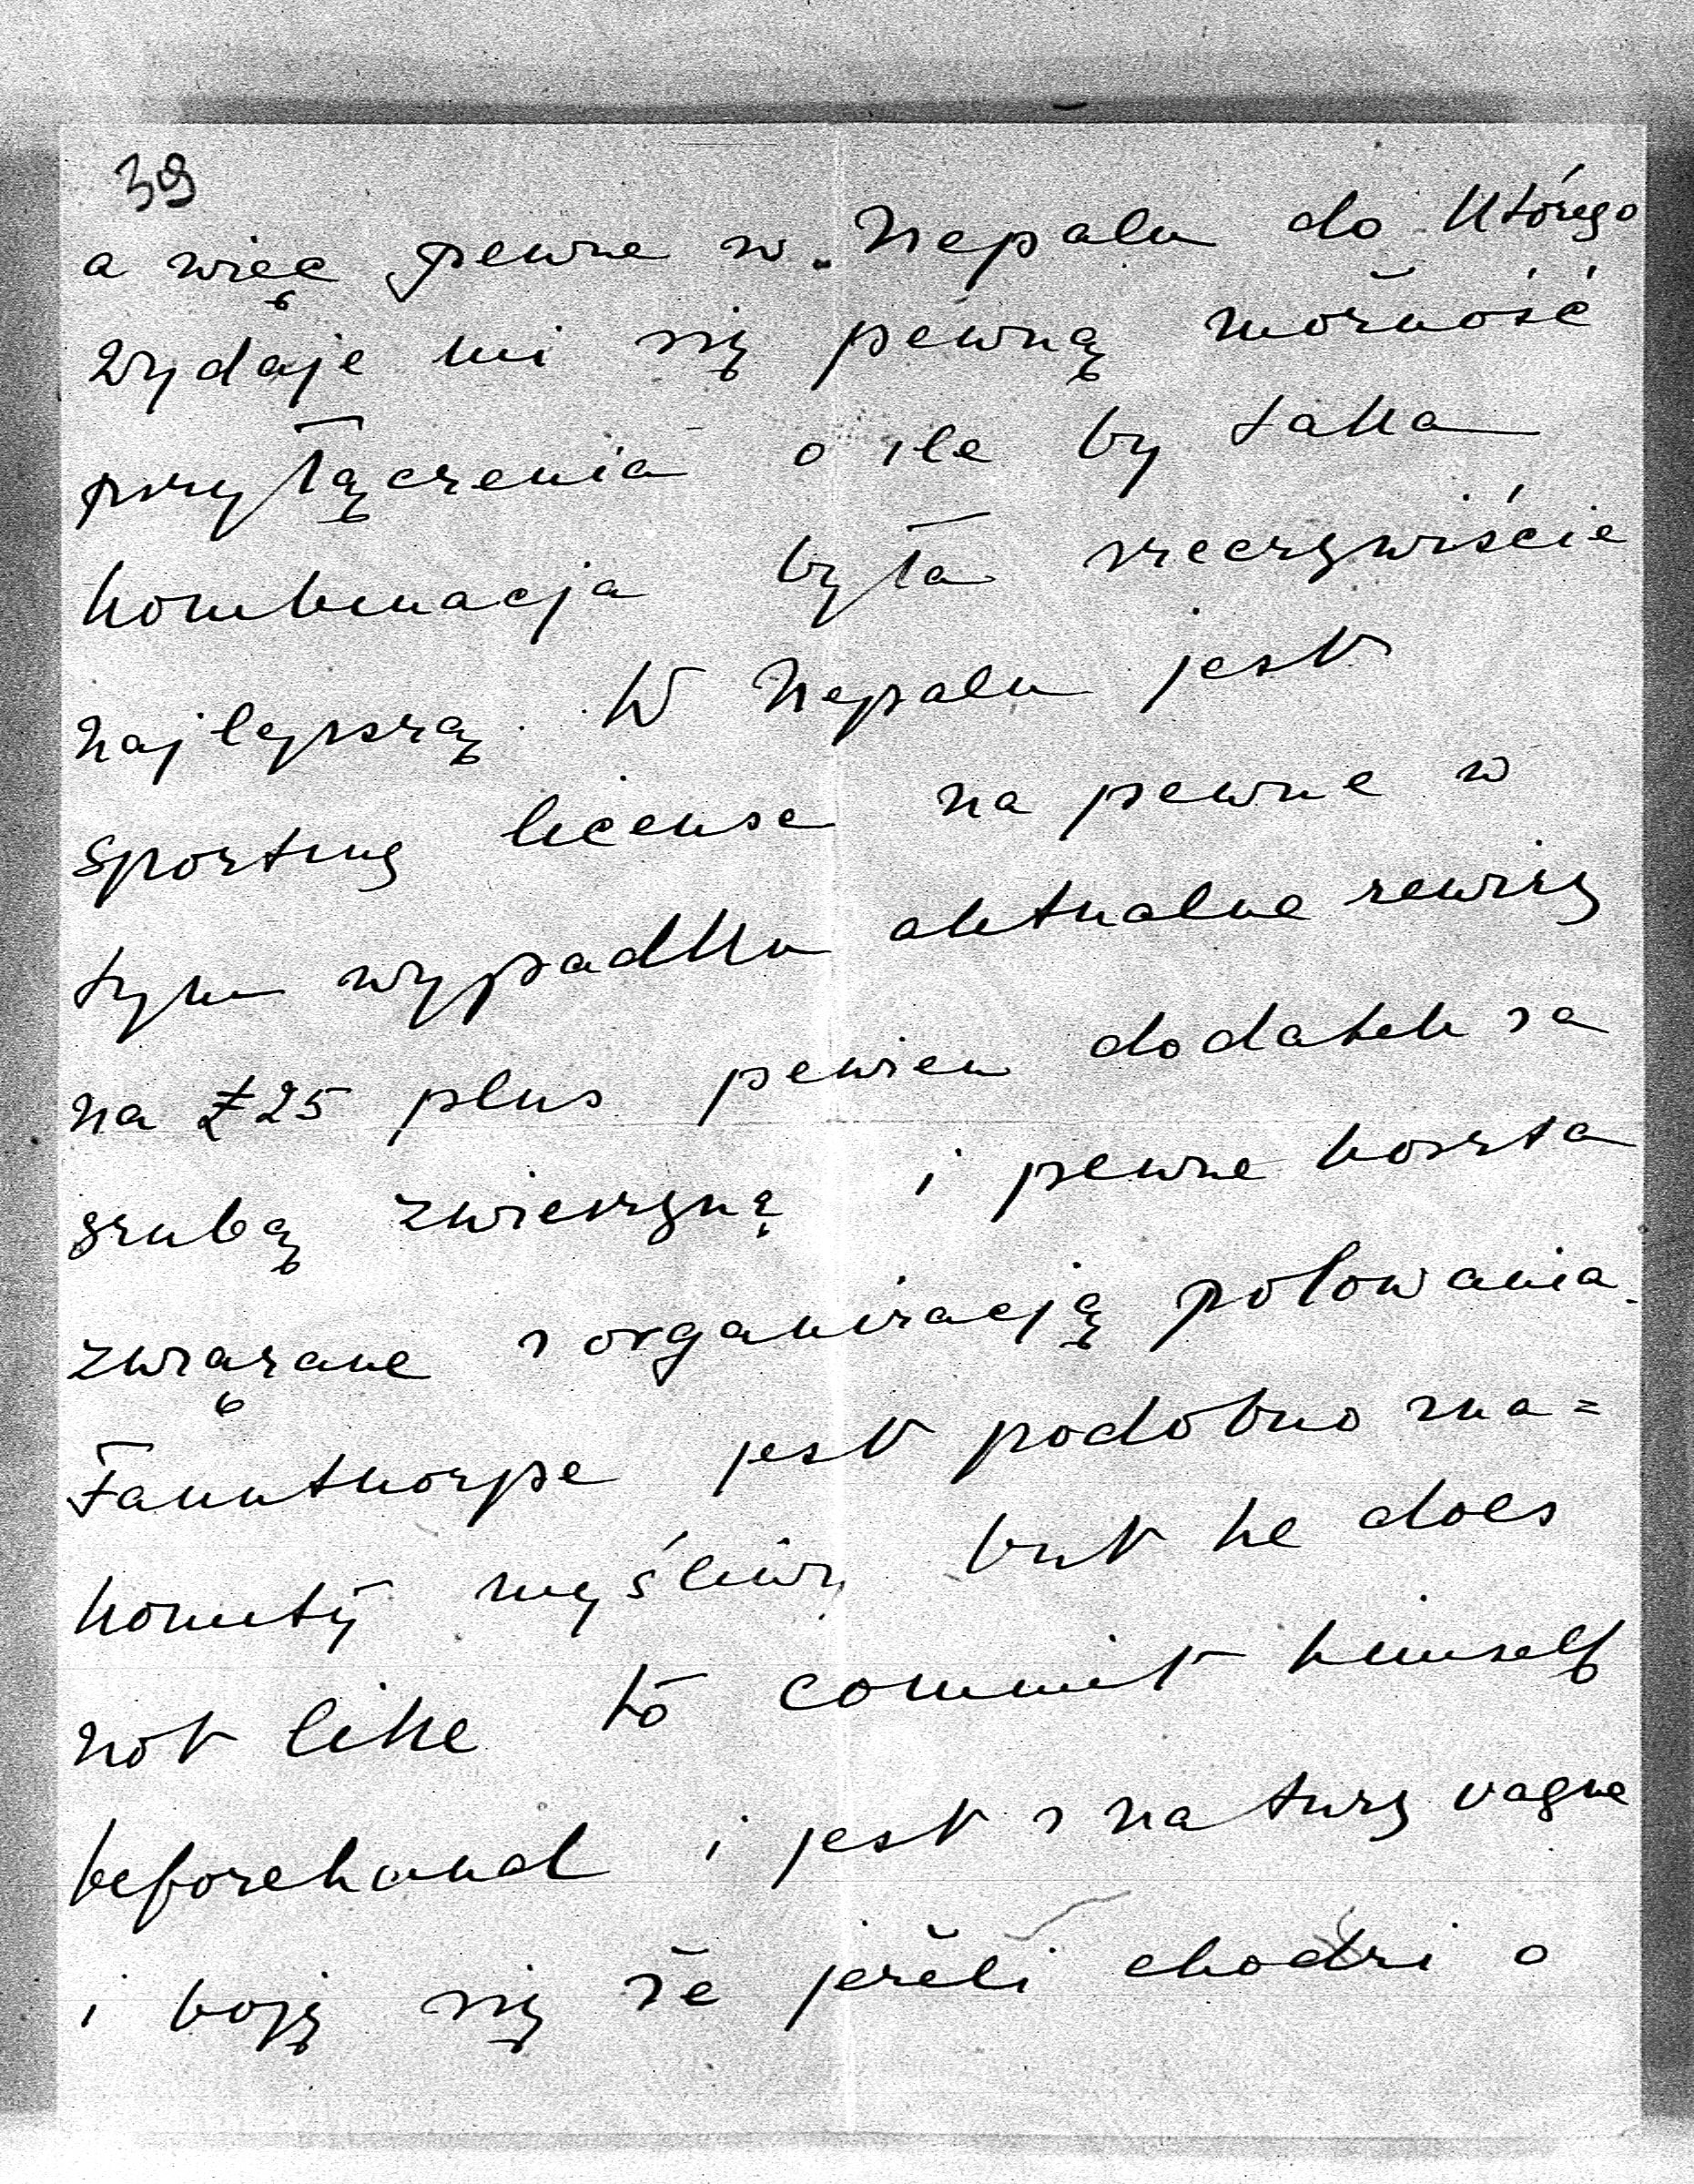 39
a więc pewne w Nepalu do którego
wydaje mi się pewną możność
przyłączenia o ile by taka
kombinacja była rzeczywiście
najlepszą. W Nepalu jest
sporting license na pewne w
tym wypadku aktualne rewiry
na £25 plus pewien dodatek za
grubą zwierzynę i pewne koszta
związane z organizacją polowania.
Faunthorpe jest podobno zna=
komity myśliwy but he does
not like to commit himself
beforehand i jest z natury vague
i boję się że jeżeli chodzi o